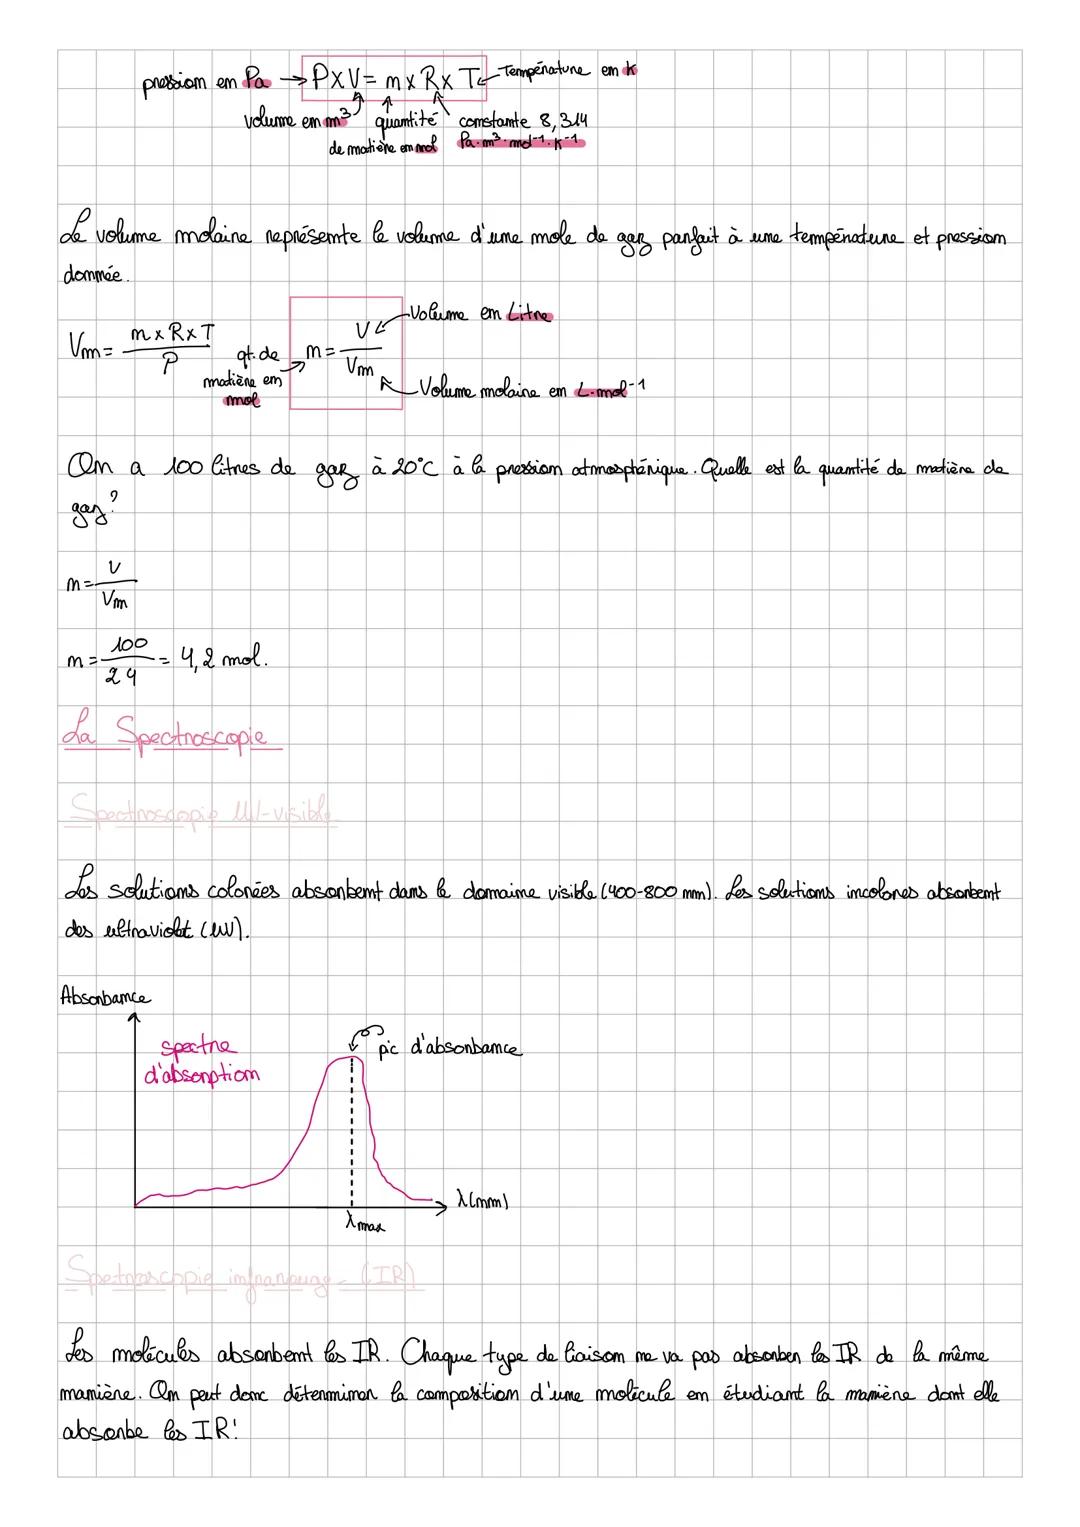 pression en Pa → P x V = n x R x T ← Température en K
volume en m³ quantité constante 8,314
de matière en mol Pa.m³.mol⁻¹.K⁻¹
Le volume molaire représente le volume d'une mole de gaz parfait à une température et pression
donnée.
Volume en Litre
Vm = n x R x T / P
qt. de matière en mol
n = V / Vm
Volume molaire en L.mol⁻¹
On a 100 litres de gaz à 20°C à la pression atmosphérique. Quelle est la quantité de matière de
gaz ?
n = V / Vm
n = 100 / 24 = 4,2 mol.
La Spectroscopie
Spectroscopie UV-visible
Les solutions colorées absorbent dans le domaine visible (400-800 nm). Les solutions incolores absorbent
des ultraviolet (UV).
Absorbance
spectre
d'absorption
pic d'absorbance
λ(nm)
λmax
Spetroscopie infrarouge - (IR)
Les molécules absorbent les IR. Chaque type de liaison ne va pas absorber les IR de la même
manière. On peut donc déterminer la composition d'une molécule en étudiant la manière dont elle
absorbe les IR!